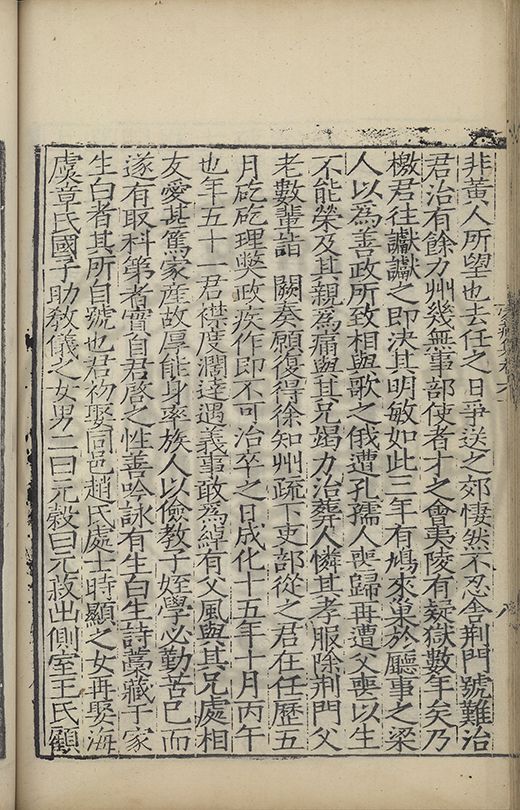 非黃人所望也去任之日爭送之郊悽然不忍舍荆門號難治
君治有餘力州幾無事部使者才之會夷陵有疑獄數年矣乃
檄君往讞讞之即決其明敏如此三年有鳩來巢於廳事之梁
人以爲善政所致相與歌之俄遭孔孺人喪歸再遭父喪以生
不能榮及其親爲痛與其兄竭力治葬人憐其孝服除荆門父
老數輩詣 闕奏願復得徐知州疏下吏部從之君在任歷五
月矻矻理獘政疾作即不可治卒之日成化十五年十月丙午
也年五十一君襟度濶達遇義事敢爲綽有父風與其兄處相
友愛甚篤家産故厚能身率族人以儉教子姪學必勤苦已而
遂有取科第者實自君啓之性善吟詠有生白生詩藁藏于家
生白者其所自號也君初娶同邑趙氏處士時顯之女再娶海
虞章氏國子助教儀之女男二曰元榖曰元救出側室王氏顧